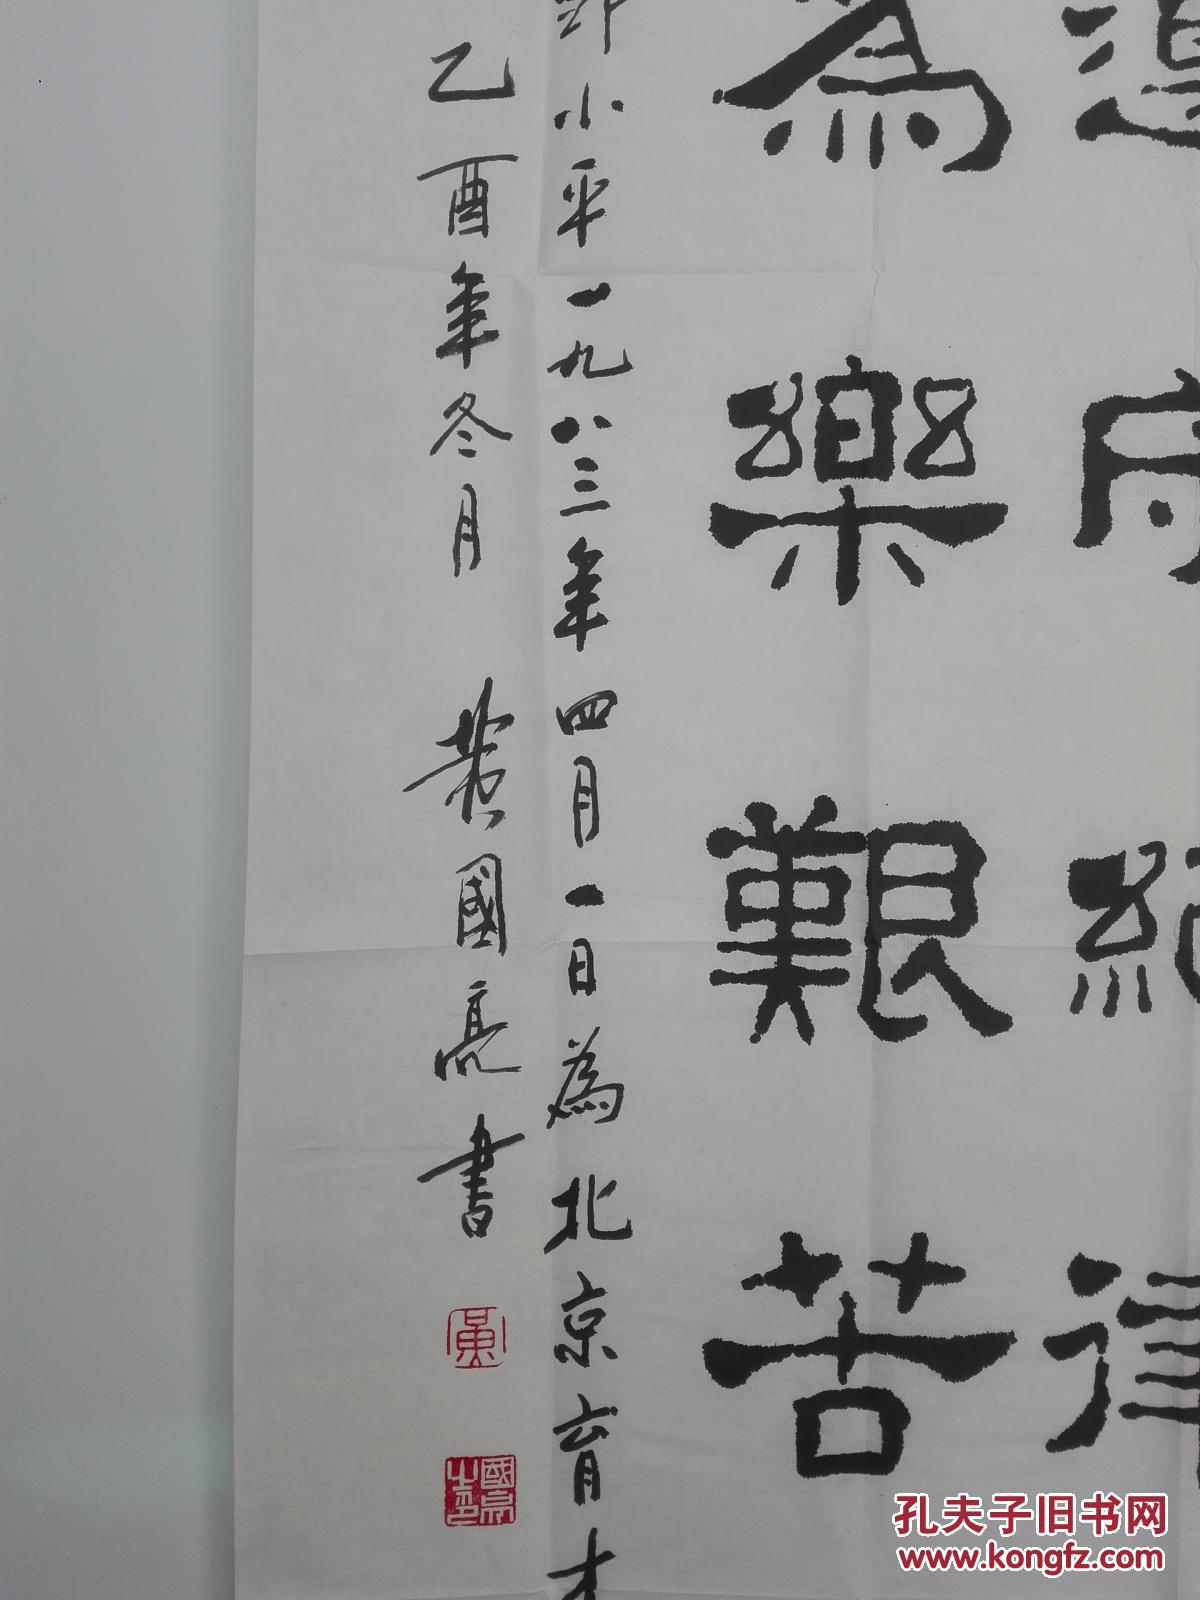 遵守紀律
為樂艱苦
鄧小平一九八三年四月一日為北京育才
乙酉年冬月 黃國亮書
黃
國亮之印
孔夫子旧书网
www.kongfz.com